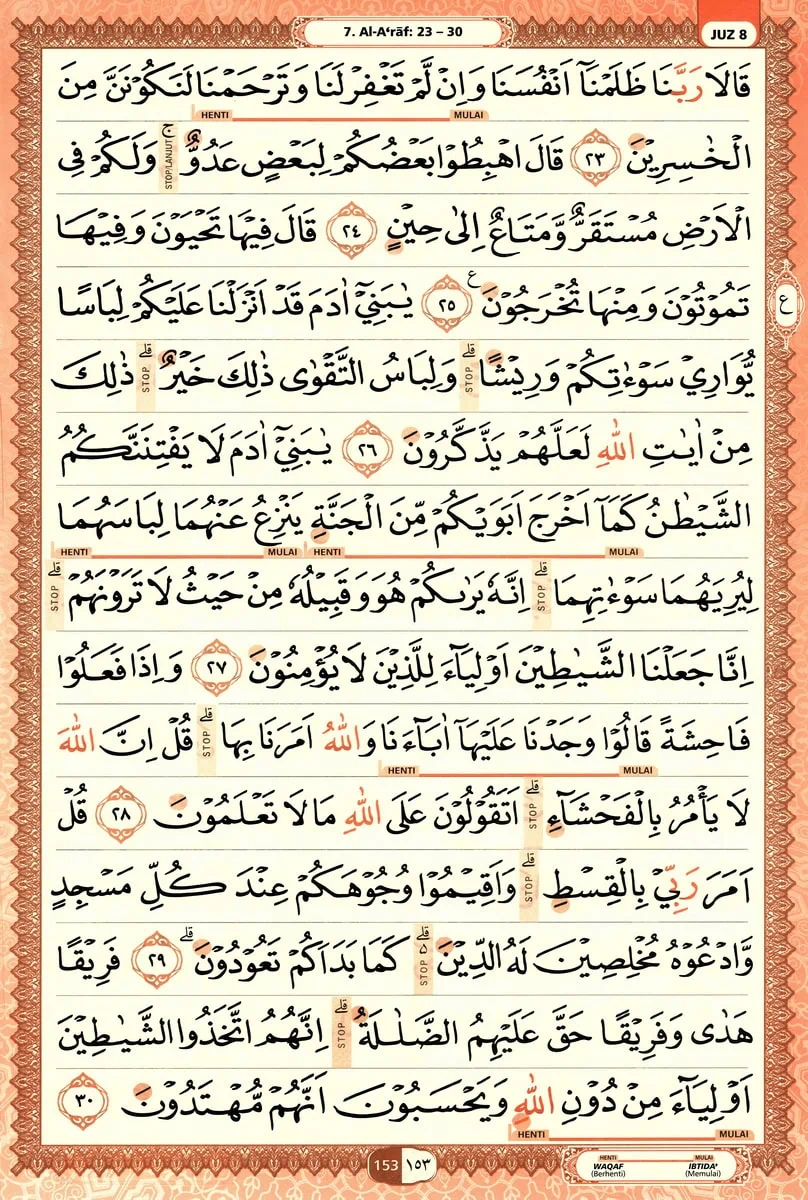 7. Al-A‘rāf: 23 – 30
JUZ 8
قَالَا رَبَّنَا ظَلَمْنَآ اَنْفُسَنَا وَاِنْ لَّمْ تَغْفِرْ لَنَا وَتَرْحَمْنَا لَنَكُوْنَنَّ مِنَ
HENTI MULAI
الْخٰسِرِيْنَ ٢٣ قَالَ اهْبِطُوْا بَعْضُكُمْ لِبَعْضٍ عَدُوٌّ ۚ STOP/LANJUT وَلَكُمْ فِى
الْاَرْضِ مُسْتَقَرٌّ وَّمَتَاعٌ اِلٰى حِيْنٍ ٢٤ قَالَ فِيْهَا تَحْيَوْنَ وَفِيْهَا
تَمُوْتُوْنَ وَمِنْهَا تُخْرَجُوْنَ ع ٢٥ يٰبَنِيْٓ اٰدَمَ قَدْ اَنْزَلْنَا عَلَيْكُمْ لِبَاسًا
ع
يُّوَارِيْ سَوْءٰتِكُمْ وَرِيْشًا ۗ STOP وَلِبَاسُ التَّقْوٰى ذٰلِكَ خَيْرٌ ۗ STOP ذٰلِكَ
مِنْ اٰيٰتِ اللّٰهِ لَعَلَّهُمْ يَذَّكَّرُوْنَ ٢٦ يٰبَنِيْٓ اٰدَمَ لَا يَفْتِنَنَّكُمُ
الشَّيْطٰنُ كَمَآ اَخْرَجَ اَبَوَيْكُمْ مِّنَ الْجَنَّةِ يَنْزِعُ عَنْهُمَا لِبَاسَهُمَا
HENTI MULAI HENTI MULAI
لِيُرِيَهُمَا سَوْءٰتِهِمَا ۗ STOP اِنَّهٗ يَرٰىكُمْ هُوَ وَقَبِيْلُهٗ مِنْ حَيْثُ لَا تَرَوْنَهُمْ ۗ STOP
اِنَّا جَعَلْنَا الشَّيٰطِيْنَ اَوْلِيَاۤءَ لِلَّذِيْنَ لَا يُؤْمِنُوْنَ ٢٧ وَاِذَا فَعَلُوْا
فَاحِشَةً قَالُوْا وَجَدْنَا عَلَيْهَآ اٰبَاۤءَنَا وَاللّٰهُ اَمَرَنَا بِهَا ۗ STOP قُلْ اِنَّ اللّٰهَ
HENTI MULAI
لَا يَأْمُرُ بِالْفَحْشَاۤءِ ۗ STOP اَتَقُوْلُوْنَ عَلَى اللّٰهِ مَا لَا تَعْلَمُوْنَ ٢٨ قُلْ
اَمَرَ رَبِّيْ بِالْقِسْطِ ۗ STOP وَاَقِيْمُوْا وُجُوْهَكُمْ عِنْدَ كُلِّ مَسْجِدٍ
وَّادْعُوْهُ مُخْلِصِيْنَ لَهُ الدِّيْنَ ۗ STOP كَمَا بَدَاَكُمْ تَعُوْدُوْنَ ۗ ٢٩ فَرِيْقًا
هَدٰى وَفَرِيْقًا حَقَّ عَلَيْهِمُ الضَّلٰلَةُ ۗ STOP اِنَّهُمُ اتَّخَذُوا الشَّيٰطِيْنَ
اَوْلِيَاۤءَ مِنْ دُوْنِ اللّٰهِ وَيَحْسَبُوْنَ اَنَّهُمْ مُّهْتَدُوْنَ ٣٠
HENTI MULAI
153 ١٥٣
HENTI MULAI
WAQAF IBTIDA'
(Berhenti) (Memulai)